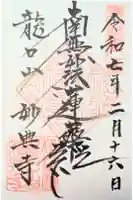 令和七年二月十六日
南無妙法蓮華経
龍口山 妙典寺